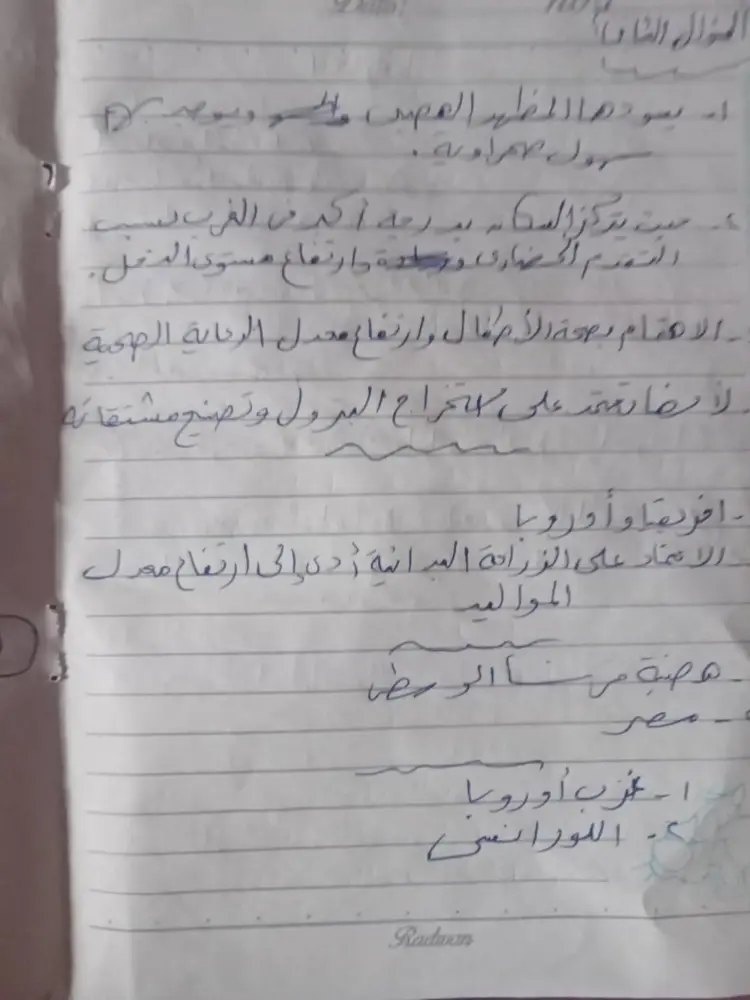 السؤال الثانى
١- يسودها المظهر الهضبى ويوجد بها
سهول صحراوية .
٢- حيث يتركز السكان بدرجة أكبر فى الغرب بسبب
التقدم الحضارى وارتفاع مستوى الدخل .
- الاهتمام بصحة الأطفال وارتفاع معدل الرعاية الصحية
- لأنها تعتمد على استخراج البترول وتصنيع مشتقاته
- افريقيا وأوروبا
- الاعتماد على الزراعة البدائية أدى إلى ارتفاع معدل
المواليد
- هضبة فرنسا الوسطى
- مصر
١- غرب أوروبا
٢- اللورانشى
Radwan